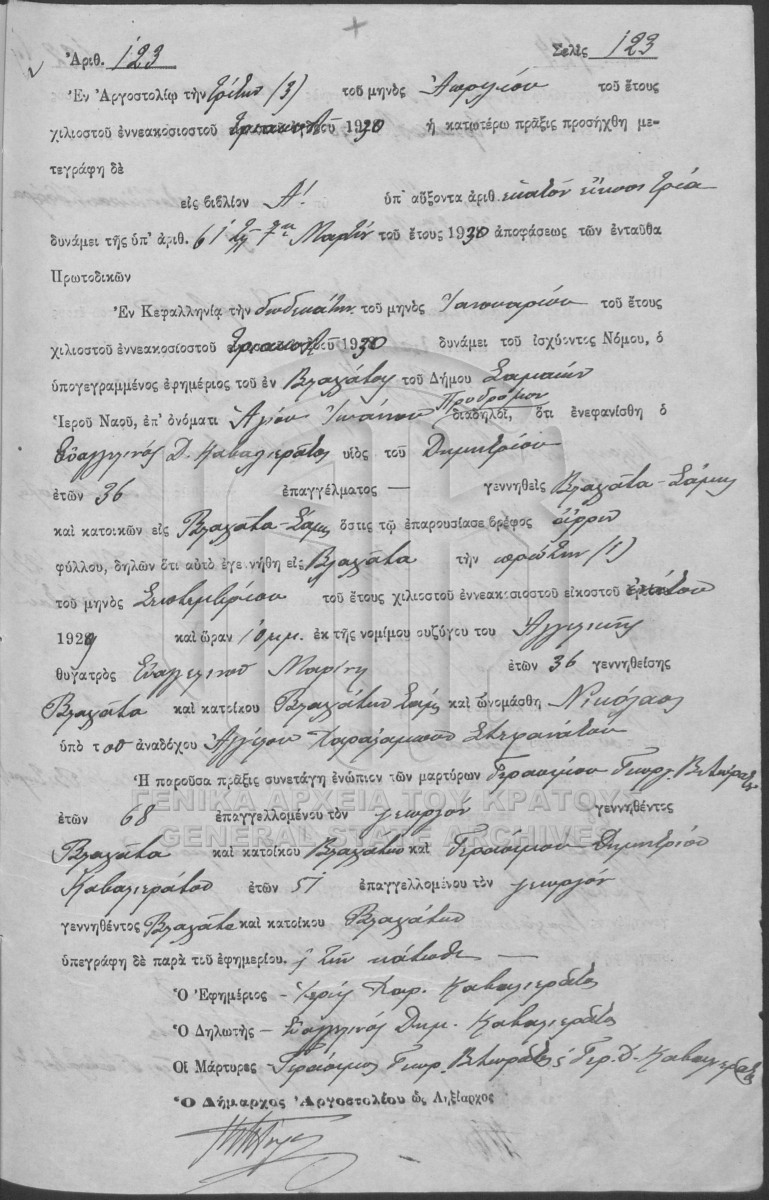 Ἀριθ. 123 Σελὶς 123
Ἐν Ἀργοστολίῳ τὴν τρίτην (3) τοῦ μηνὸς Ἀπριλίου τοῦ ἔτους
χιλιοστοῦ ἐννεακοσιοστοῦ τριακοστοῦ 1930 ἡ κατωτέρω πρᾶξις προσήχθη με-
τεγράφη δὲ
εἰς βιβλίον Α! ὑπ' αὔξοντα ἀριθ. ἑκατὸν εἴκοσι τρία
δυνάμει τῆς ὑπ' ἀριθ. 61 τῆς 7ης Μαρτίου τοῦ ἔτους 1930 ἀποφάσεως τῶν ἐνταῦθα
Πρωτοδικῶν
Ἐν Κεφαλληνίᾳ τὴν δωδεκάτην τοῦ μηνὸς Ἰανουαρίου τοῦ ἔτους
χιλιοστοῦ ἐννεακοσιοστοῦ τριακοστοῦ 1930 δυνάμει τοῦ ἰσχύοντος Νόμου, ὁ
ὑπογεγραμμένος ἐφημέριος τοῦ ἐν Βλαχάτοις τοῦ Δήμου Σαμαίων
Ἱεροῦ Ναοῦ, ἐπ' ὀνόματι Ἁγίου Ἰωάννου Προδρόμου διαδηλοῖ, ὅτι ἐνεφανίσθη ὁ
Εὐαγγελινὸς Δ. Καβαλιεράτος υἱὸς τοῦ Δημητρίου
ἐτῶν 36 ἐπαγγέλματος — γεννηθεὶς Βλαχάτα-Σάμης
καὶ κατοικῶν εἰς Βλαχάτα-Σάμης ὅστις τῷ ἐπαρουσίασε βρέφος ἄρρεν
φύλλου, δηλῶν ὅτι αὐτὸ ἐγεννήθη εἰς Βλαχάτα τὴν πρώτην (1)
τοῦ μηνὸς Σεπτεμβρίου τοῦ ἔτους χιλιοστοῦ ἐννεακοσιοστοῦ εἰκοστοῦ
1929 καὶ ὥραν 10 μ.μ. ἐκ τῆς νομίμου συζύγου του Ἀγγελικῆς
θυγατρὸς Εὐαγγελινοῦ Μαρίνη ἐτῶν 36 γεννηθείσης
Βλαχάτα καὶ κατοίκου Βλαχάτων Σάμης καὶ ὠνομάσθη Νικόλαος
ὑπὸ τοῦ ἀναδόχου Ἀγγέλου Χαραλάμπους Στεφανάτου
Ἡ παροῦσα πρᾶξις συνετάγη ἐνώπιον τῶν μαρτύρων Γερασίμου Γεωργ. Βιτωράτου
ἐτῶν 68 ἐπαγγελλομένου τὸν γεωργὸν γεννηθέντος
Βλαχάτα καὶ κατοίκου Βλαχάτων καὶ Γερασίμου Δημητρίου
Καβαλιεράτου ἐτῶν 51 ἐπαγγελλομένου τὸν γεωργὸν
γεννηθέντος Βλαχάτα καὶ κατοίκου Βλαχάτων
ὑπεγράφη δὲ παρὰ τοῦ ἐφημερίου, κάτωθι —
Ὁ Ἐφημέριος – Ἱερεὺς Χαρ. Καβαλιεράτος
Ὁ Δηλωτὴς – Εὐαγγελινὸς Δημ. Καβαλιεράτος
Οἱ Μάρτυρες – Γεράσιμος Γεωρ. Βιτωράτος Γερ. Δ. Καβαλιεράτος
Ὁ Δήμαρχος Ἀργοστολίου ὡς Ληξίαρχος
ΓΕΝΙΚΑ ΑΡΧΕΙΑ ΤΟΥ ΚΡΑΤΟΥΣ
GENERAL STATE ARCHIVES